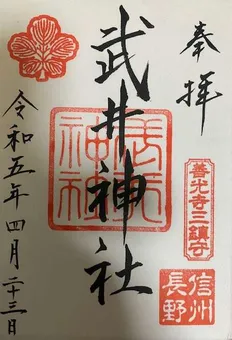 奉拝
善光寺三鎮守
信州
長野
武井神社
武井
神社
令和五年四月二十三日